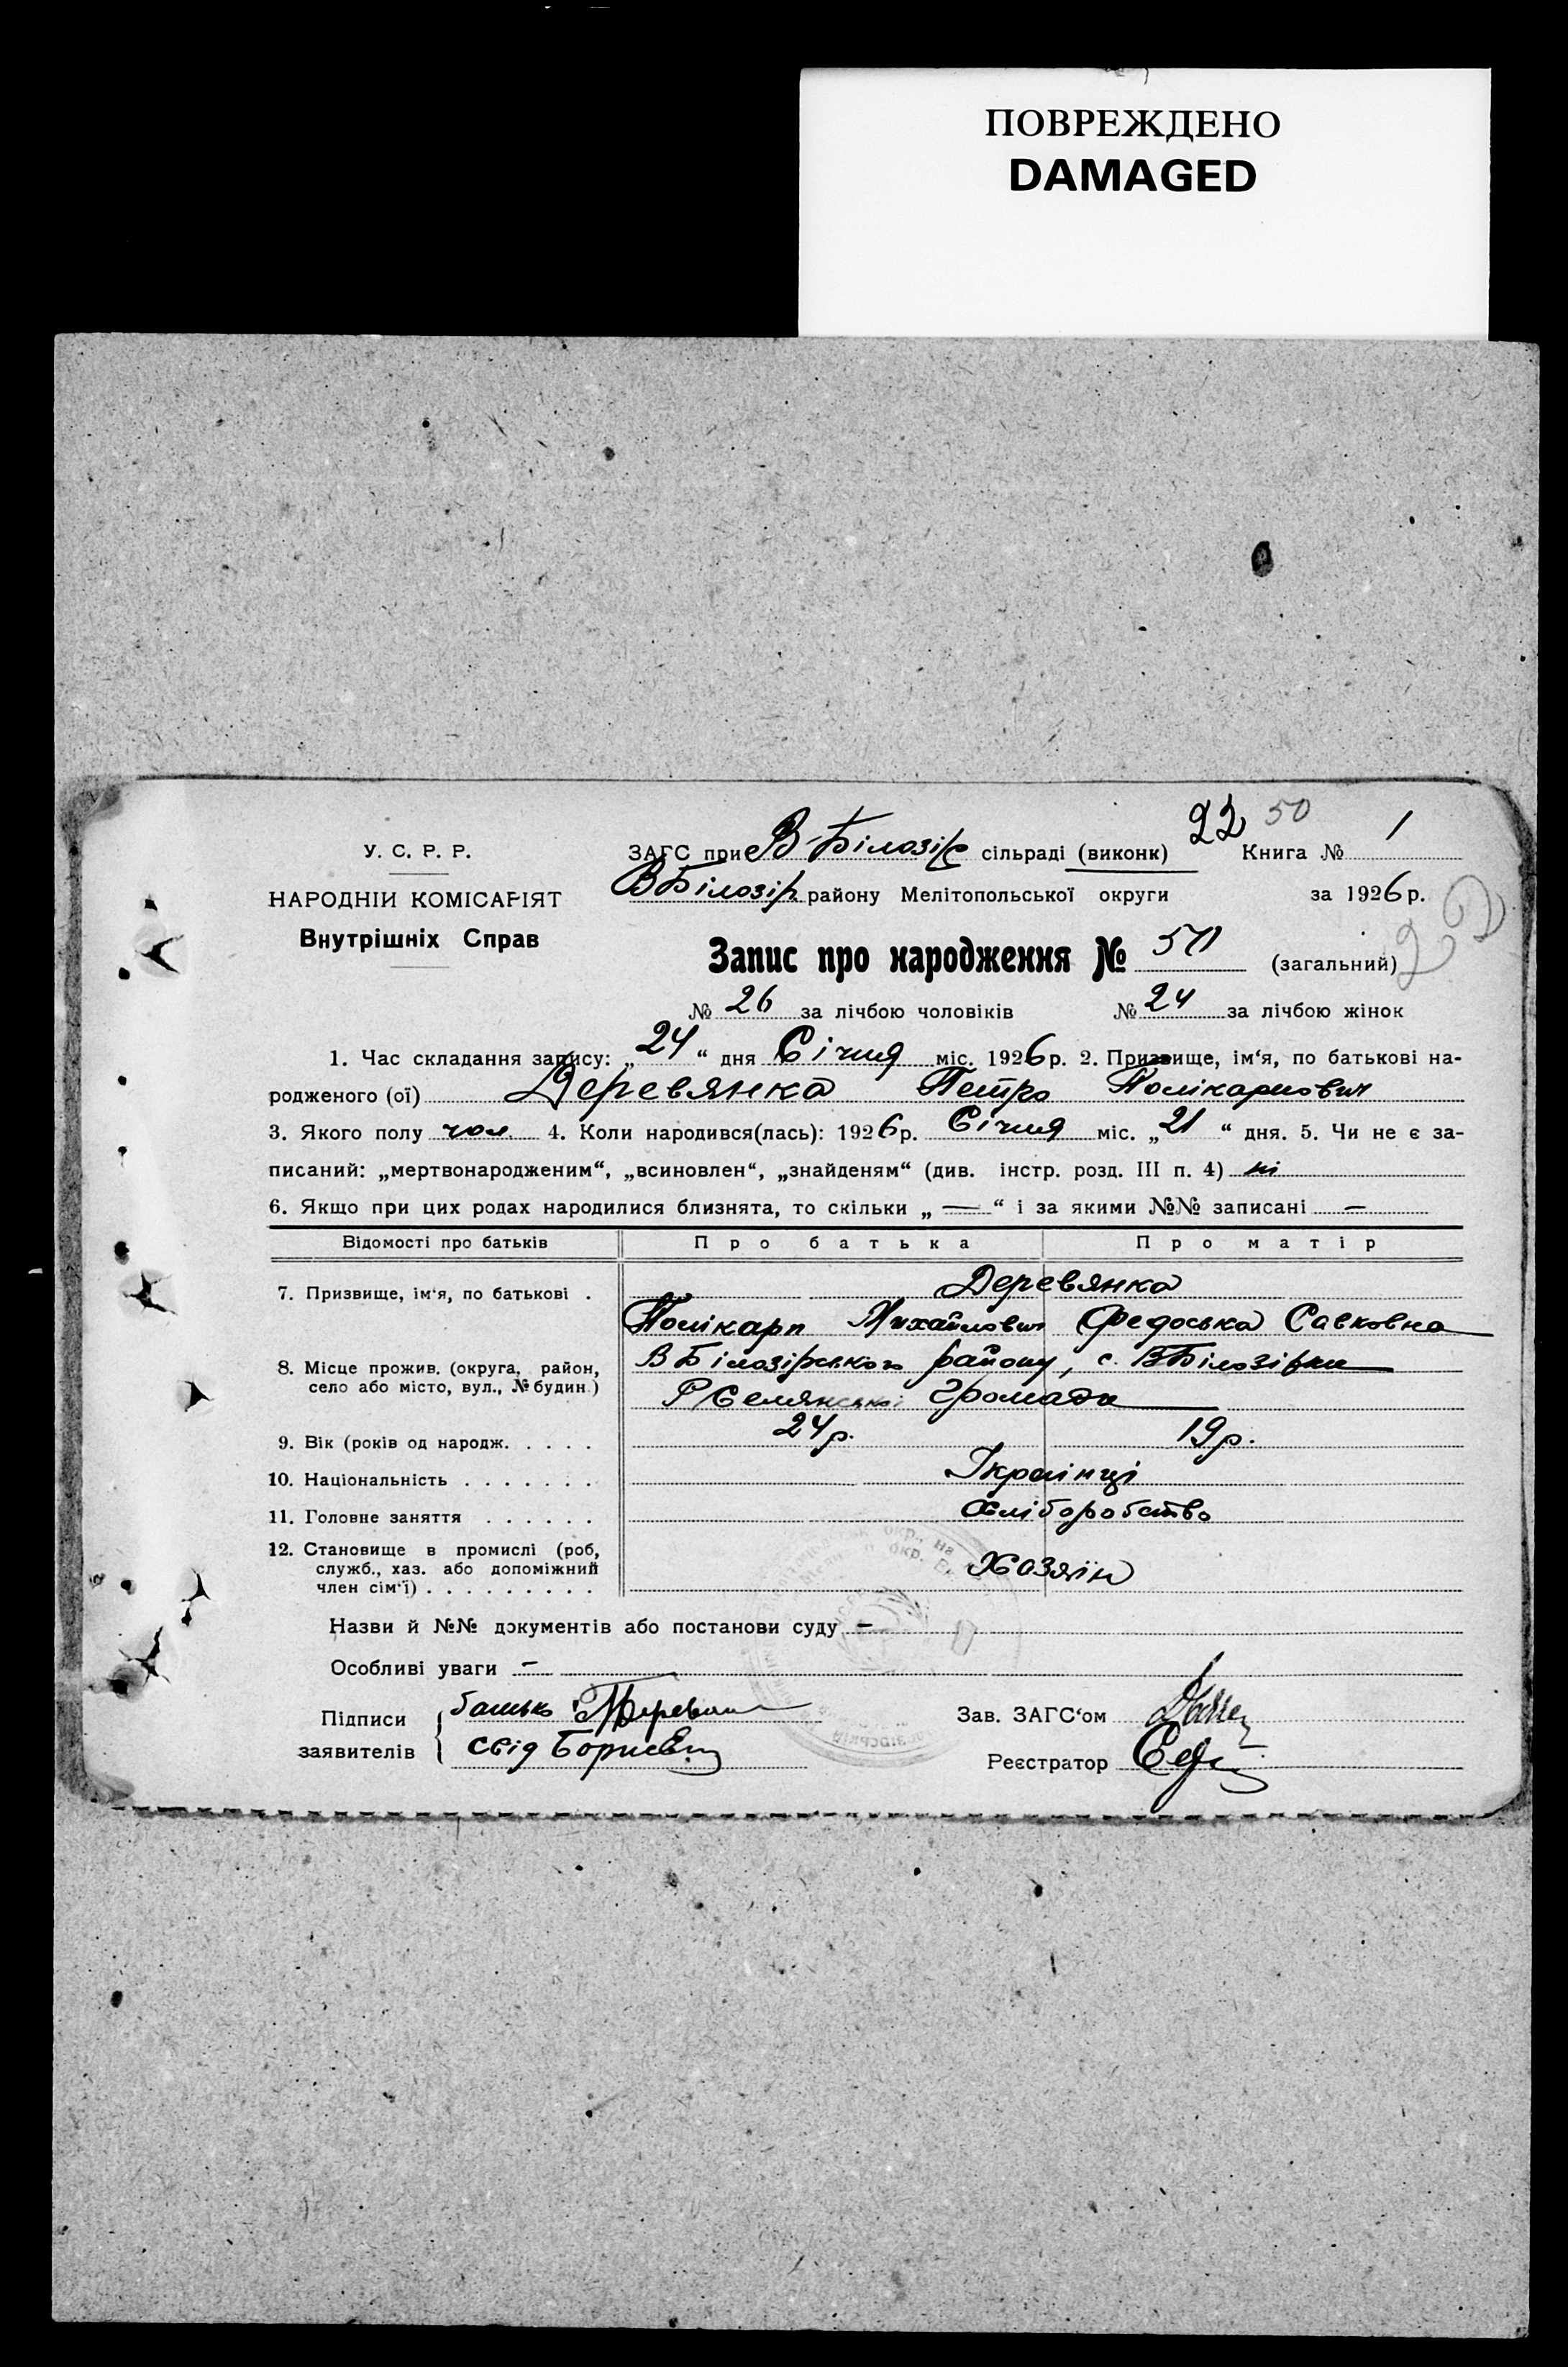 ПОВРЕЖДЕНО
DAMAGED
22 50
У. С. Р. Р.
ЗАГС при В-Білозір сільраді (виконк) Книга № 1
НАРОДНІЙ КОМІСАРІЯТ
В Білозір. району Мелітопольської округи за 1926 р.
Внутрішніх Справ
Запис про народження № (загальний)
№ 26 за лічбою чоловіків № 24 за лічбою жінок
1. Час складання запису: „24“ дня Січня міс. 1926 р. 2. Призвище, ім‘я, по батькові на-
родженого (ої) Деревянка Петро Полікарпович
3. Якого полу чол. 4. Коли народився(лась): 1926 р. Січня міс. „21“ дня. 5. Чи не є за-
писаний: „мертвонародженим“, „всиновлен“, „знайденям“ (див. інстр. розд. III п. 4) ні
6. Якщо при цих родах народилися близнята, то скільки „ — “ і за якими №№ записані —
Відомості про батьків Про батька Про матір
7. Призвище, ім‘я, по батькові . Деревянка
Полікарп Михайлович Федоська Савковна
8. Місце прожив. (округа, район, село або місто, вул., № будин.) В Білозірського району, с. В Білозірки
Селянської Громади
9. Вік (років од народж. . . . . 24 р. 19 р.
10. Національність . . . . . . . Українці
11. Головне заняття . . . . . . Хліборобство
12. Становище в промислі (роб, служб., хаз. або допоміжний член сім‘ї) . . . . . . . . . Хозяїн
Назви й №№ документів або постанови суду —
Особливі уваги —
Підписи батько Зав. ЗАГС‘ом
заявителів свід Реєстратор